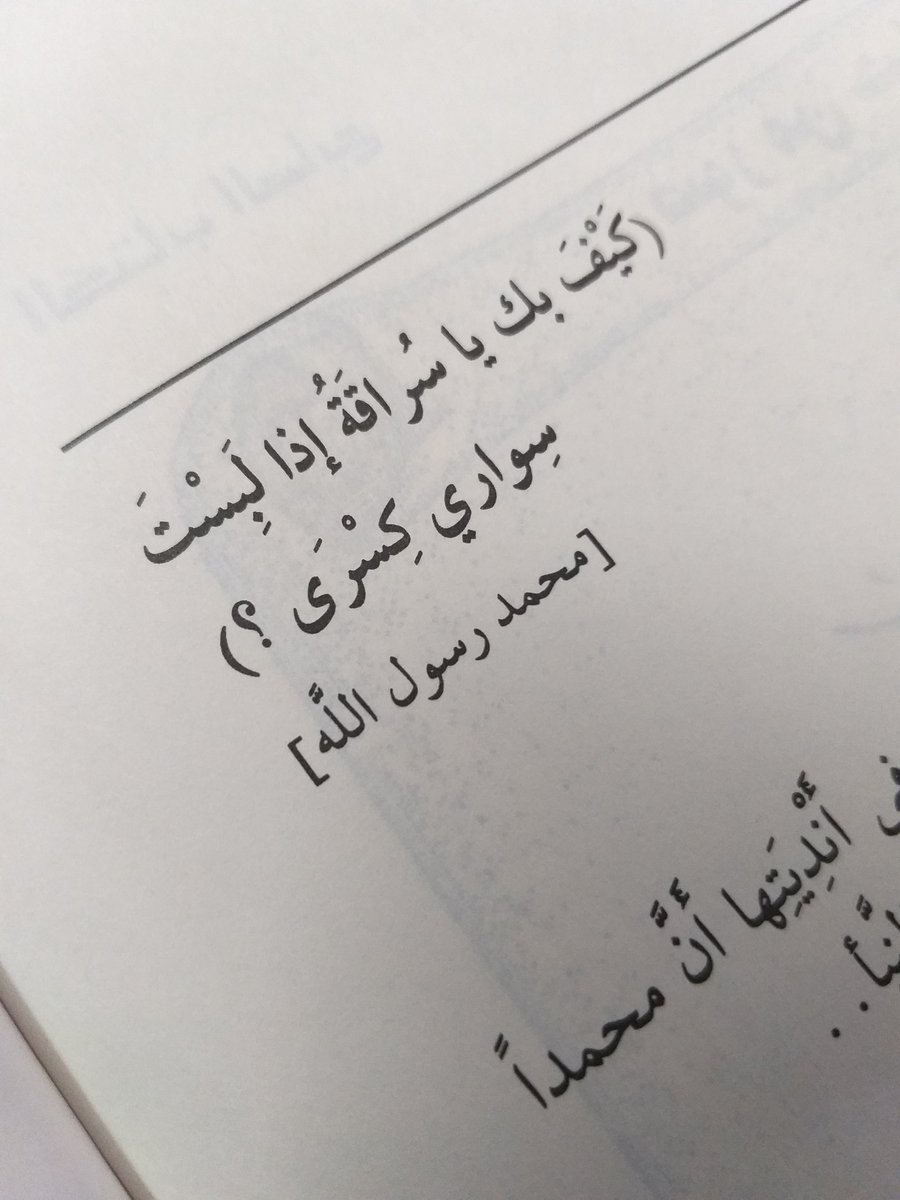 (كَيْفَ بك يا سُراقَةُ إذا لَبِسْتَ
سِواري كِسْرَى ؟)
[محمد رسول اللَّه]
في أَنْدِيَتِها أَنَّ محمداً